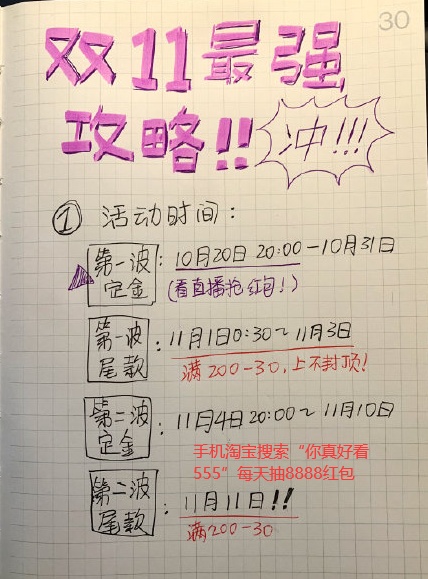 30
双11最强
攻略!!
冲!!!
① 活动时间:
第一波定金: 10月20日 20:00-10月31日
(看直播抢红包!)
第一波尾款: 11月1日0:30~11月3日
满200-30,上不封顶!
第二波定金: 11月4日20:00~11月10日
手机淘宝搜索“你真好看
555”每天抽8888红包
第二波尾款: 11月11日!!
满200-30